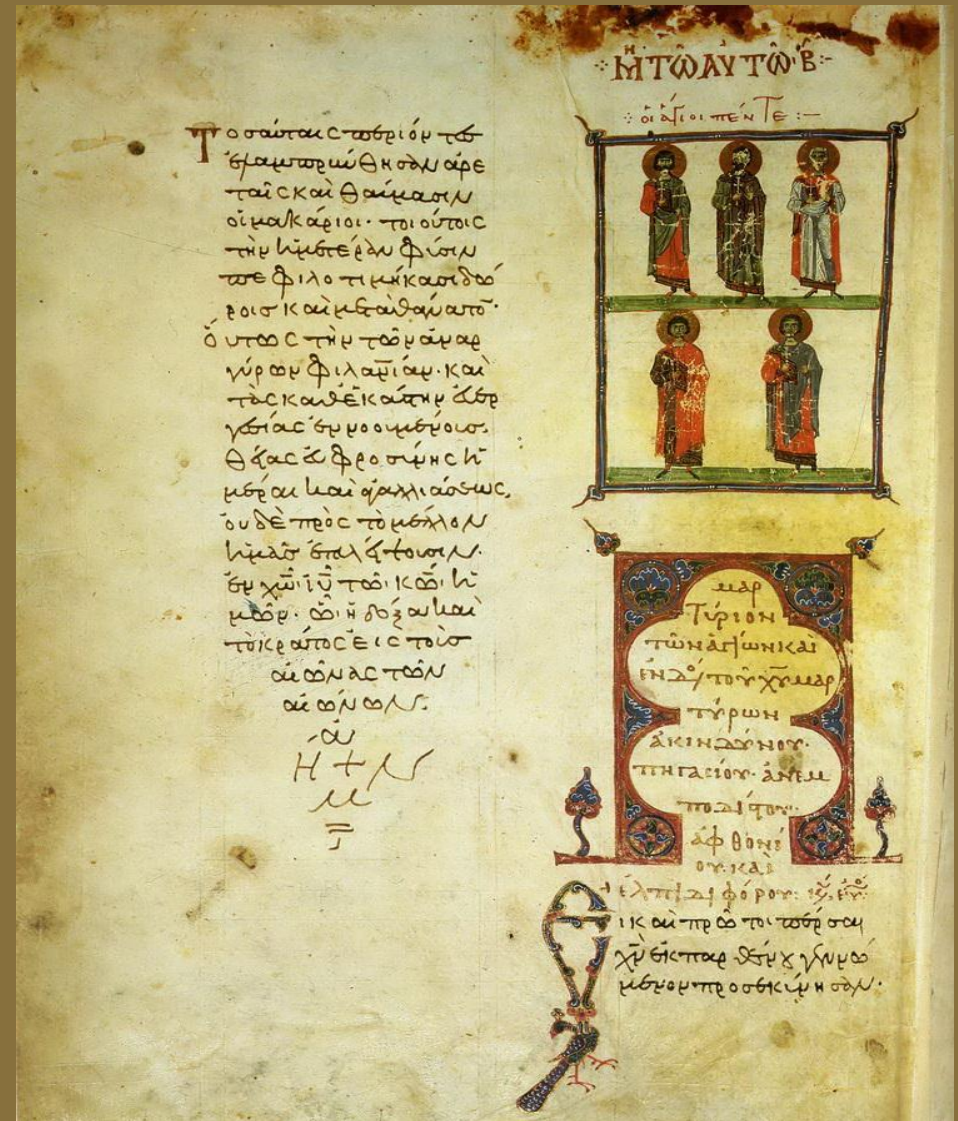 Τοσαύταις περιόντες
ἐλαμπρύνθησαν ἀρε
ταῖς καὶ θαύμασιν
οἱ μακάριοι· τοιούτοις
τὴν ἡμετέραν φύσιν
πεφιλοτιμήκασι δώ
ροις καὶ μετὰ θάνατον·
οὕτως τὴν τῶν ἀναρ
γύρων φιλανίαν· καὶ
τὰς καθἑκάστην εὐερ
γεσίας ἐννοουμένοις.
θείας εὐφροσύνης ἡ
μέραι καὶ ἀγαλλιάσεως,
οὐδὲ πρὸς τὸ μέλλον
ἡμᾶς ἐπαλείφουσιν.
ἐν χῶ ιῦ τῶ κῶ ἡ
μῶν· ὧ ἡ δόξα καὶ
τὸ κράτος εἰς τοὺς
αἰῶνας τῶν
αἰώνων.
ἀ
μ
ή
ν
ΜΗ ΤΩ ΑΥΤΩ Β
οἱ ἅγιοι πέντε
μαρ
τύριον
τῶν ἁγίων καὶ
ἐνδό τοῦ χῦ μαρ
τύρων
ἀκινδύνου·
πηγασίου· ἀνεμ
ποδίστου·
ἀφθονί
ου· καὶ
ἐλπιδιφόρου·
Εἰ καὶ πρῶτοι πέρσαι
χν ἐκ παρθένου γεννώ
μενον προσεκύνησαν·